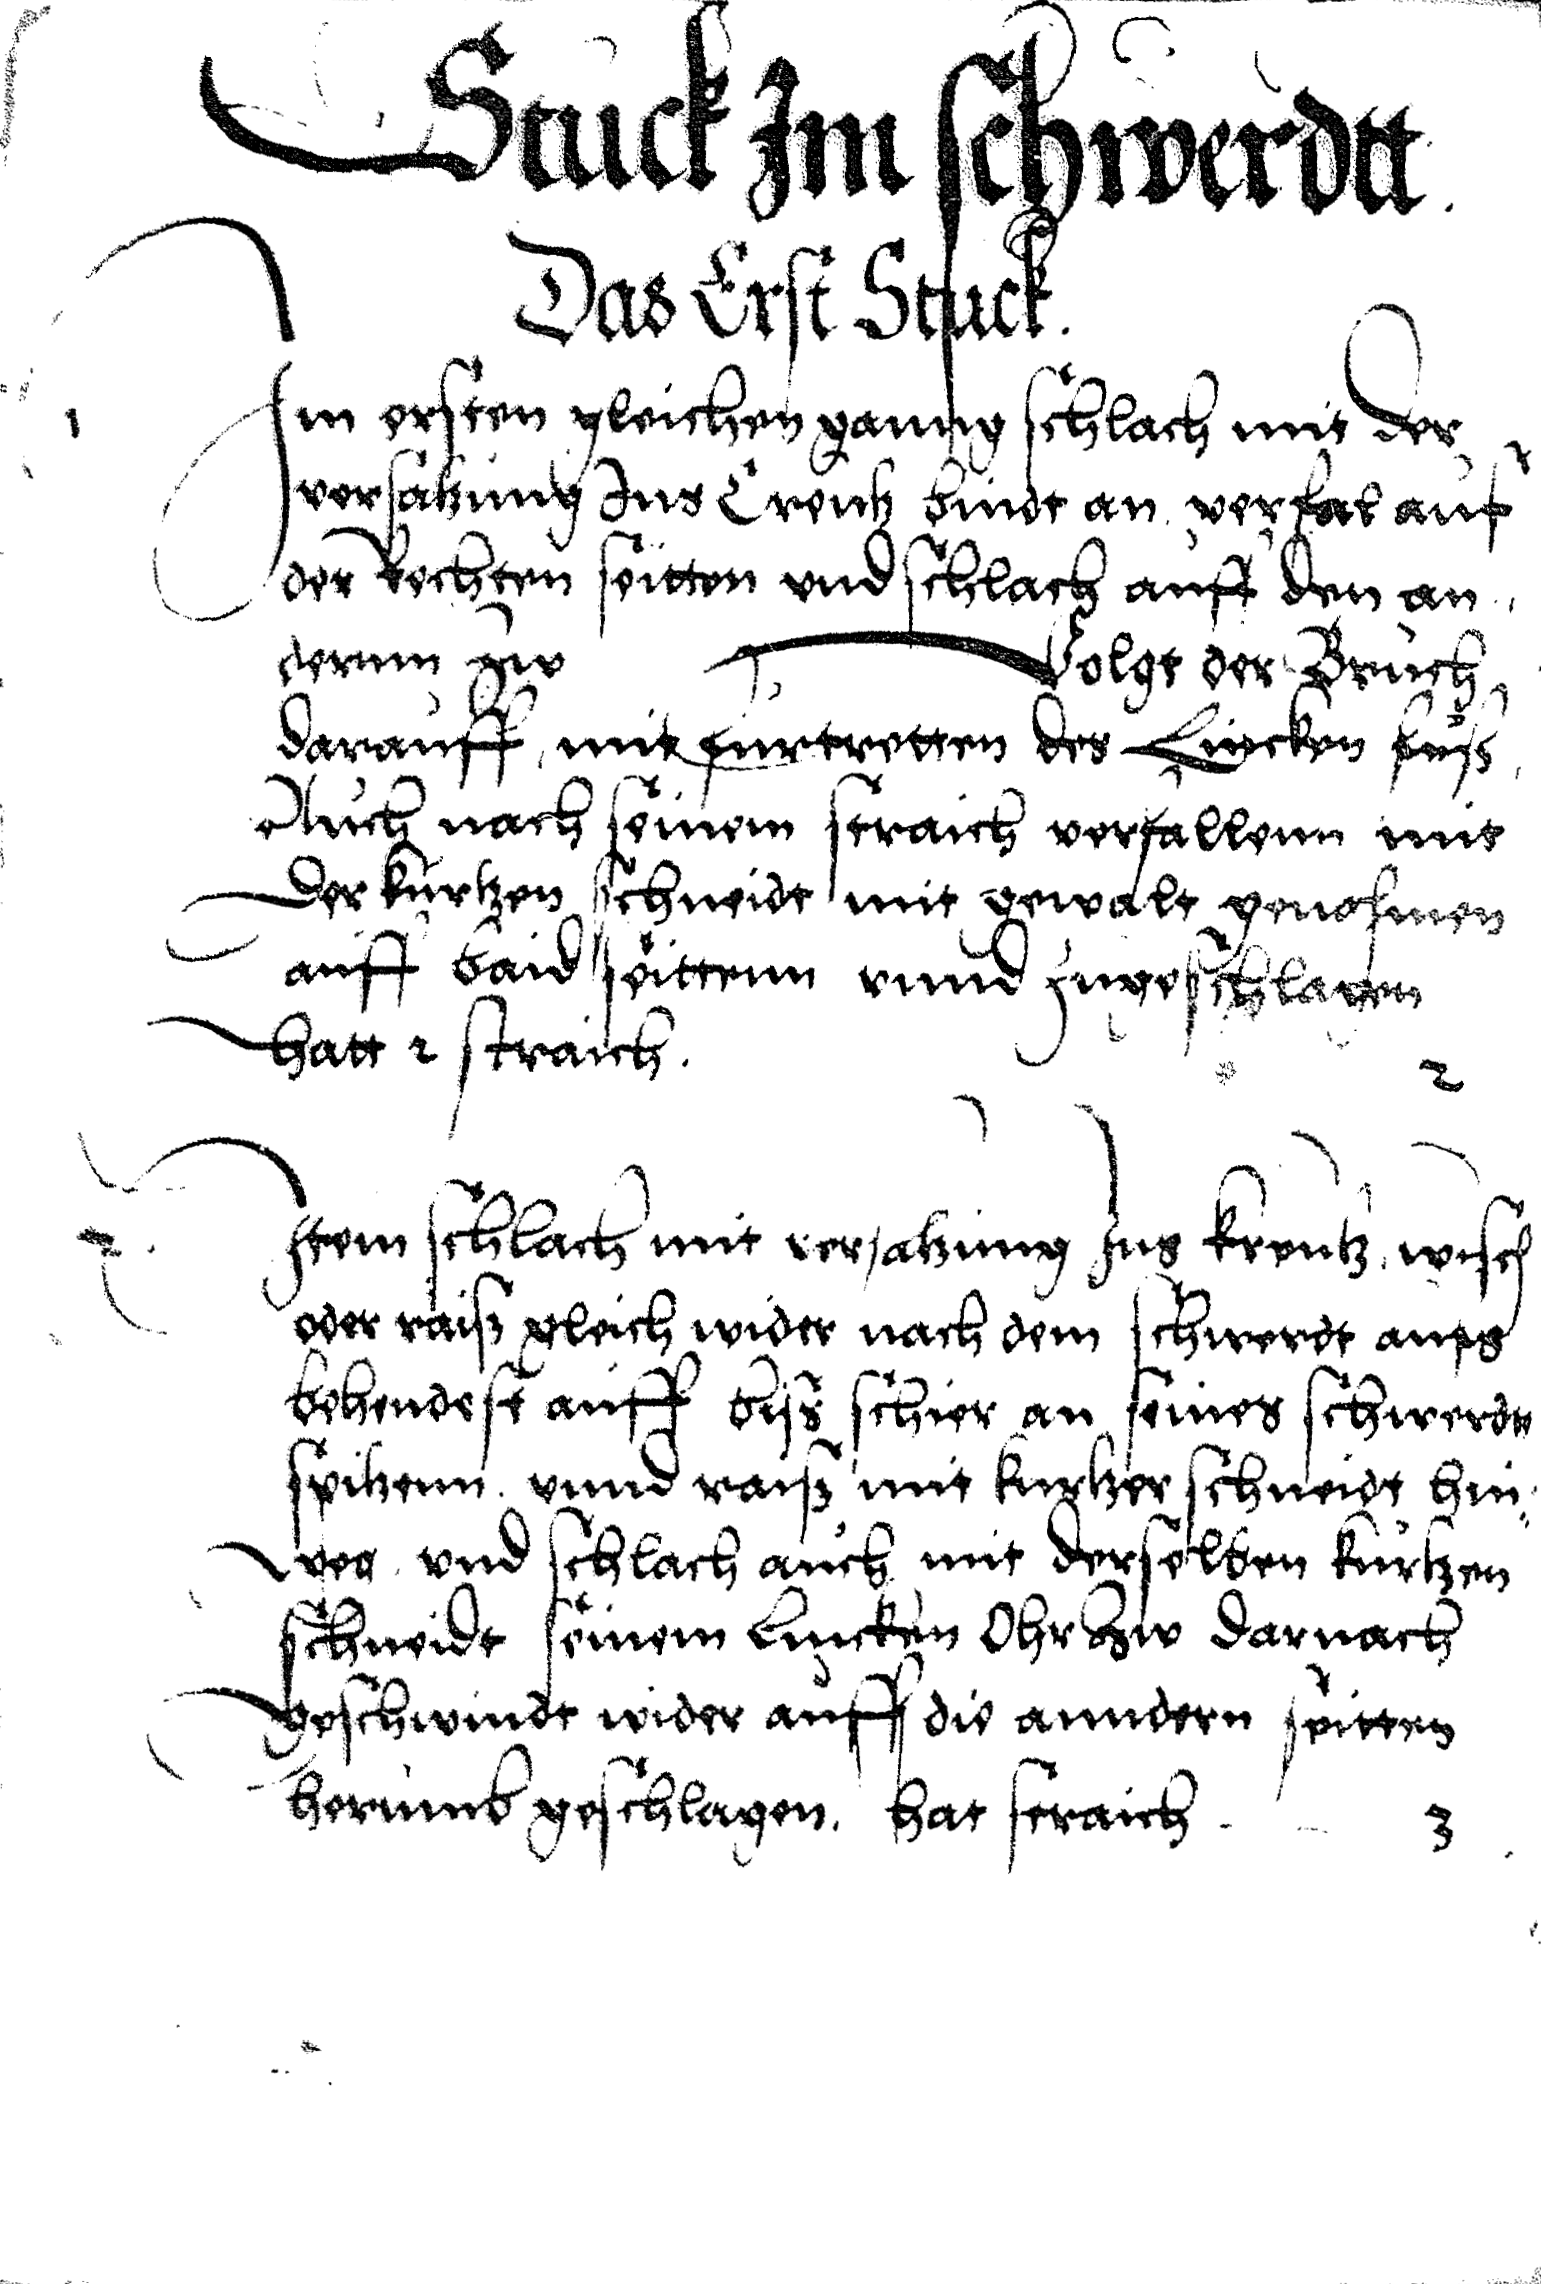 Stuck Im schwerdtt.
Das Erst Stuck.
1 Im ersten gleichen ganng schlach mit der
versatzung Ins Creutz bindt an. verfal auf
der rechten seitten vnd schlach auff den an
derenn zw Volgt der Bruch
darauff, mit furtretten des Lincken fuß,
Auch nach seinem straich verfallenn mit
der kurtzen schneidt mit gewalt genohmen
auff baid seittenn vnnd zugeschlagen
hatt 2 straich. 2
2. Item schlach mit versatzung Ins kreutz, wisch
oder raiß gleich wider nach dem schwerdt aufs
behendest auff biß schier an seines schwerdts
spitzenn. vnnd raiß mit kurtzer schneidt hin
weg vnd schlach auch mit derselben kurtzen
schneidt seinem Lincken Ohr Zw darnach
geschwindt wider auff die anndern seitten
herumb geschlagen. hat straich 3